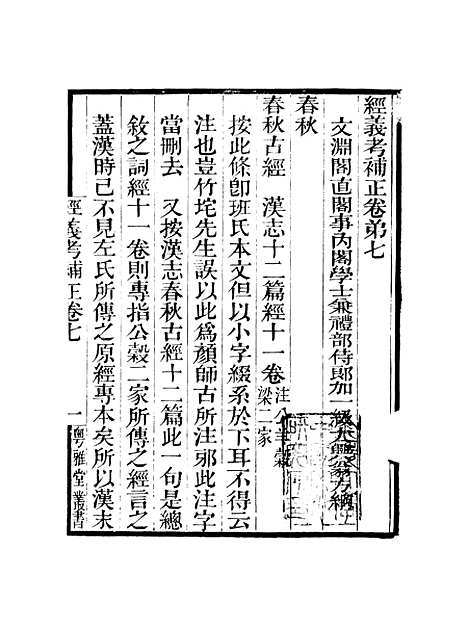 經義考補正卷弟七
文淵閣直閣事內閣學士兼禮部侍郎加一級大興翁方綱
春秋
春秋古經　漢志十二篇經十一卷注公羊穀梁二家
按此條卽班氏本文但以小字綴系於下耳不得云
注也豈竹垞先生誤以此爲顏師古所注邪此注字
當刪去　又按漢志春秋古經十二篇此一句是總
敘之詞經十一卷則專指公穀二家所傳之經言之
蓋漢時已不見左氏所傳之原經專本矣所以漢末
經義考補正卷七　一　粵雅堂叢書